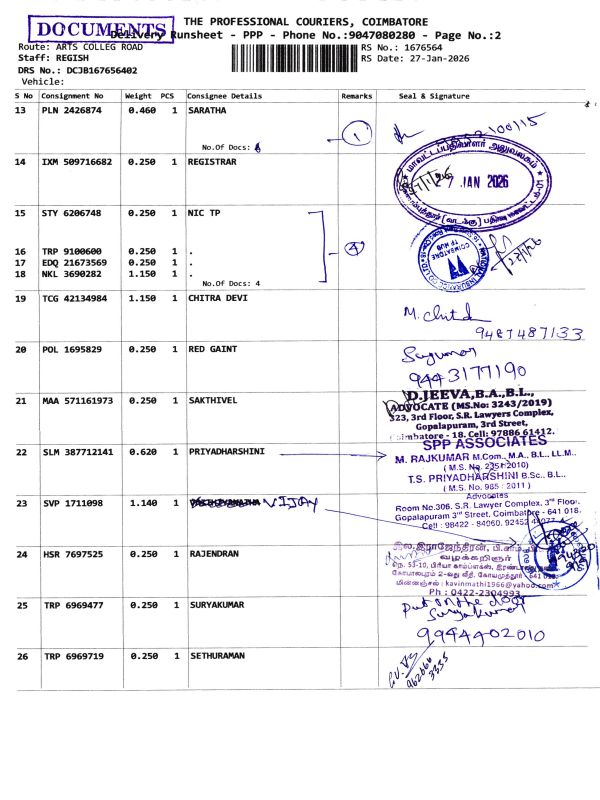 DOCUMENTS
THE PROFESSIONAL COURIERS, COIMBATORE
Delivery Runsheet - PPP - Phone No.:9047080280 - Page No.:2
Route: ARTS COLLEG ROAD
RS No.: 1676564
Staff: REGISH
RS Date: 27-Jan-2026
DRS No.: DCJB167656402
Vehicle:
S No Consignment No Weight PCS Consignee Details Remarks Seal & Signature
13 PLN 2426874 0.460 1 SARATHA
No.Of Docs:
1
14 IXM 509716682 0.250 1 REGISTRAR
27 JAN 2026
15 STY 6206748 0.250 1 NIC TP
16 TRP 9100600 0.250 1 .
4
17 EDQ 21673569 0.250 1 .
18 NKL 3690282 1.150 1 .
No.Of Docs: 4
COIMBATORE
19 TCG 42134984 1.150 1 CHITRA DEVI
9487487133
20 POL 1695829 0.250 1 RED GAINT
9443177190
21 MAA 571161973 0.250 1 SAKTHIVEL
D.JEEVA,B.A.,B.L.,
ADVOCATE (MS.No: 3243/2019)
323, 3rd Floor, S.R. Lawyers Complex,
Gopalapuram, 3rd Street,
Coimbatore - 18. Cell: 97886 61412.
22 SLM 387712141 0.620 1 PRIYADHARSHINI
SPP ASSOCIATES
M. RAJKUMAR M.Com., M.A., B.L., LL.M.,
( M.S. No. 2351 2010)
T.S. PRIYADHARSHINI B.Sc., B.L.,
(M.S. No. 985 / 2011 )
Advocates
23 SVP 1711098 1.140 1 VIJAY
Room No.306. S.R. Lawyer Complex, 3rd Floor.
Gopalapuram 3rd Street, Coimbatore - 641 018.
Cell : 98422 - 84060, 92452
24 HSR 7697525 0.250 1 RAJENDRAN
இல. இராஜேந்திரன்,
வழக்கறிஞர்
கோபாலபுரம் 2-வது வீதி, கோயமுத்தூர் - 641 018.
மின்னஞ்சல் : kavinmathi1966@yahoo.com
Ph : 0422-2304993
25 TRP 6969477 0.250 1 SURYAKUMAR
Put on the door
Suryakumar
9944402010
26 TRP 6969719 0.250 1 SETHURAMAN